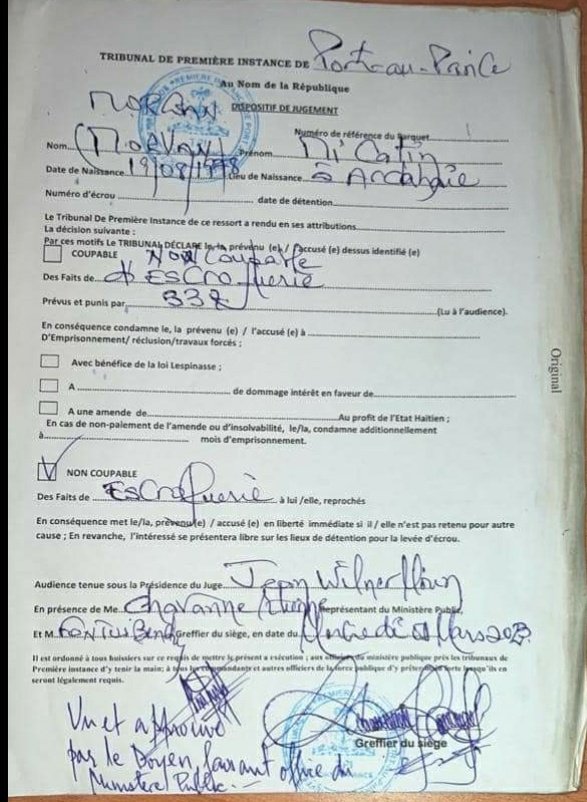 TRIBUNAL DE PREMIÈRE INSTANCE DE Port-au-Prince
Au Nom de la République
DISPOSITIF DE JUGEMENT
Numéro de référence du Parquet
Nom Prénom
Date de Naissance 19/08/1978 Lieu de Naissance à
Numéro d'écrou date de détention
Le Tribunal De Première Instance de ce ressort a rendu en ses attributions
La décision suivante :
Par ces motifs Le TRIBUNAL DÉCLARE le, la, prévenu (e) / l'accusé (e) dessus identifié (e)
COUPABLE Non Coupable
Des Faits de d'Escroquerie
Prévus et punis par 337 (Lu à l'audience).
En conséquence condamne le, la prévenu (e) / l'accusé (e) à
D'Emprisonnement/ réclusion/travaux forcés :
Avec bénéfice de la loi Lespinasse ;
A de dommage intérêt en faveur de
A une amende de Au profit de l'Etat Haïtien ;
En cas de non-paiement de l'amende ou d'insolvabilité, le/la, condamne additionnellement
à mois d'emprisonnement.
NON COUPABLE
Des Faits de Escroquerie à lui /elle, reprochés
En conséquence met le/la, prévenu(e) / accusé (e) en liberté immédiate si il / elle n'est pas retenu pour autre
cause ; En revanche, l'intéressé se présentera libre sur les lieux de détention pour la levée d'écrou.
Audience tenue sous la Présidence du Juge Jean Wilner
En présence de Me. Représentant du Ministère Public,
Et M. Greffier du siège, en date du Mars 2023
Il est ordonné à tous huissiers sur ce requis de mettre le présent a exécution ; aux officiers du ministère publique près les tribunaux de
Première instance d'y tenir la main; à tous les commandants et autres officiers de la force publique d'y prêter main forte lorsqu'ils en
seront légalement requis.
Vu et approuvé
par le Doyen, faisant office du
Ministère Public.
Greffier du siège
Original